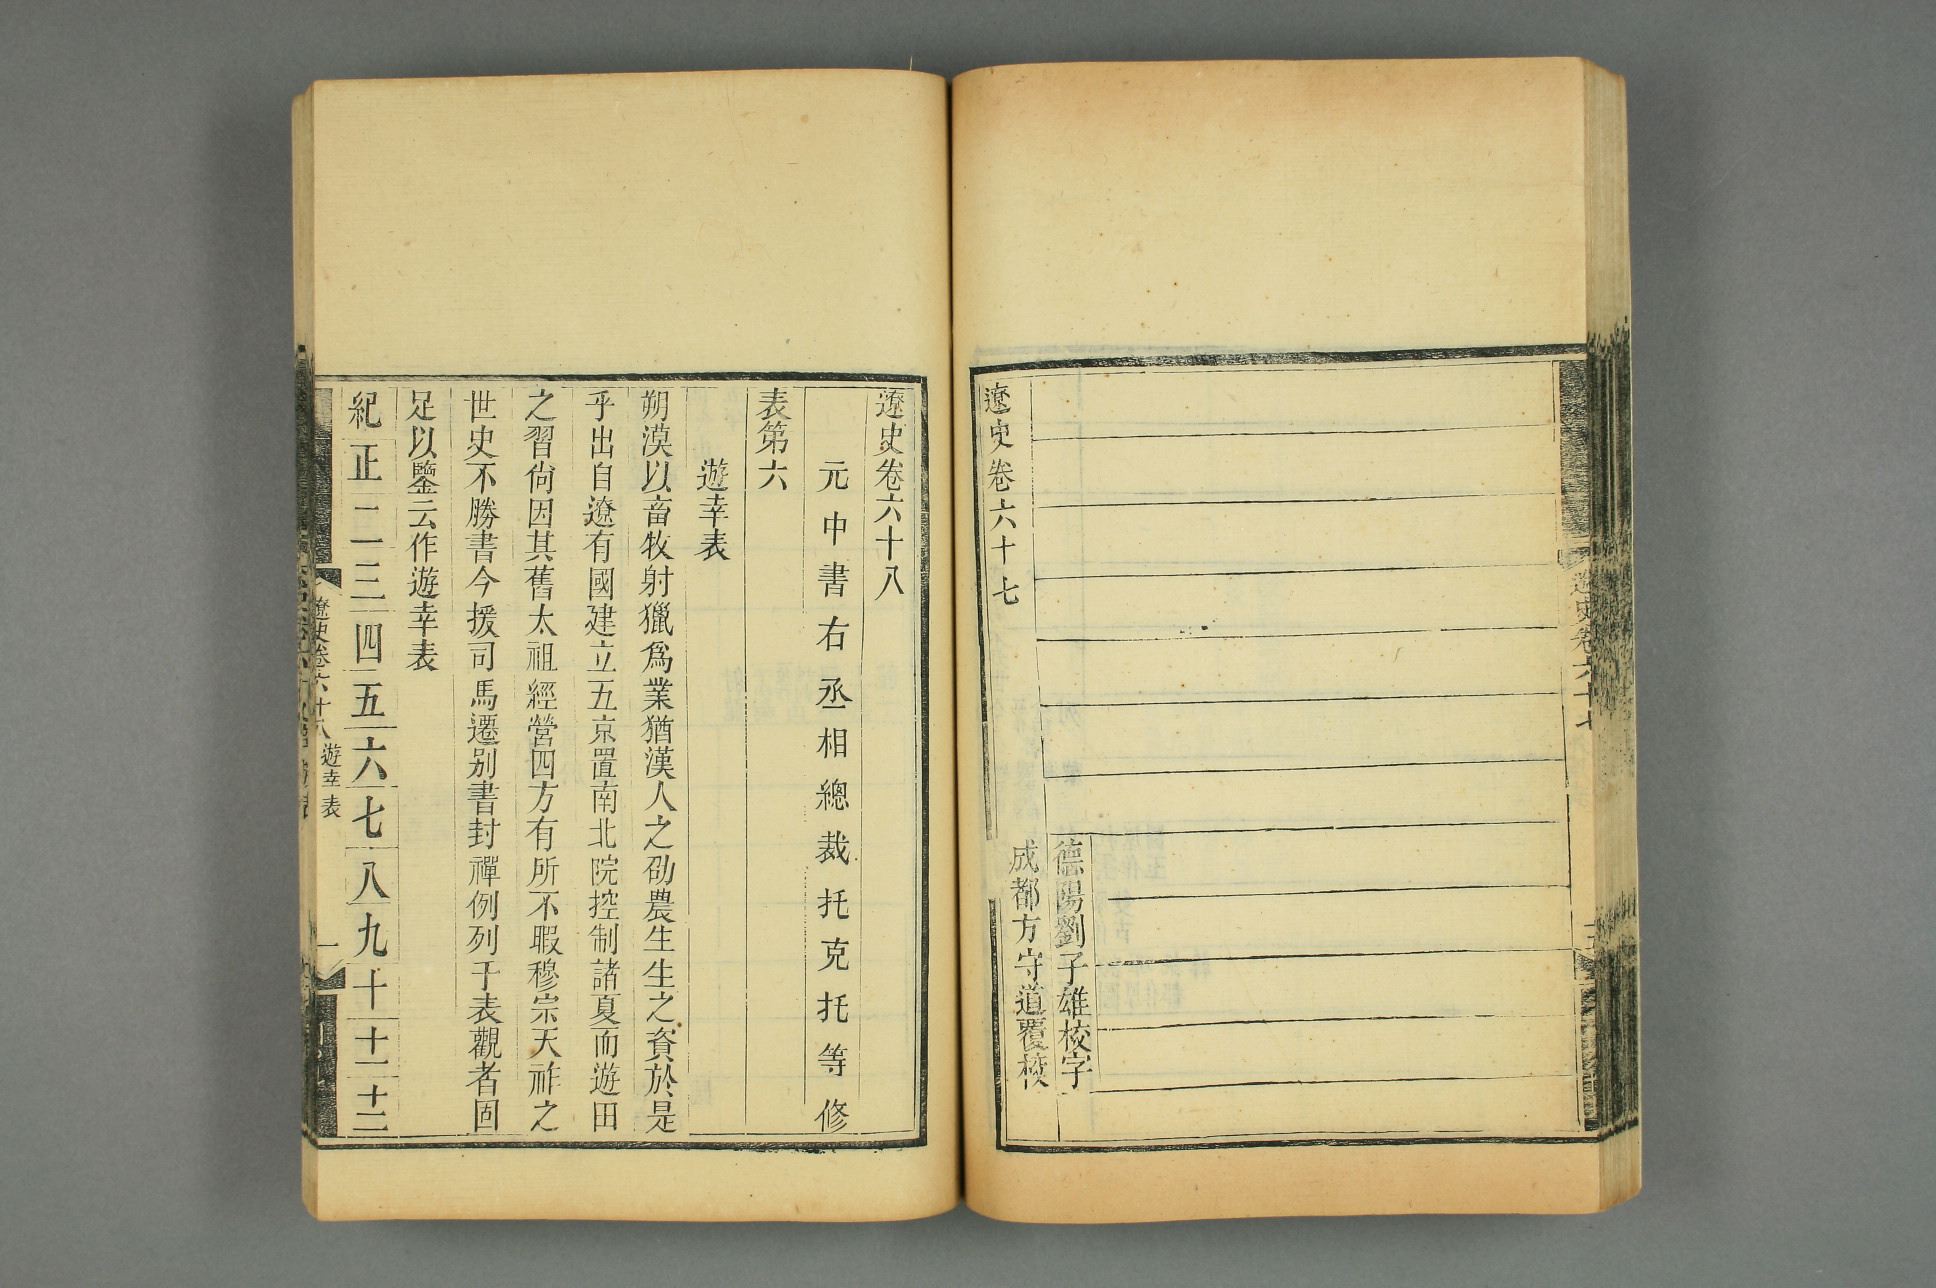 遼史卷六十七
德陽劉子雄校字
成都方守道覆校
遼史卷六十七
遼史卷六十八
元中書右丞相總裁托克托等修
表第六
遊幸表
朔漠以畜牧射獵爲業猶漢人之劭農生生之資於是
乎出自遼有國建立五京置南北院控制諸夏而遊田
之習尙因其舊太祖經營四方有所不暇穆宗天祚之
世史不勝書今援司馬遷别書封禪例列于表觀者固
足以鑒云作遊幸表
紀正二三四五六七八九十十一十二
遼史卷六十八 遊幸表 一